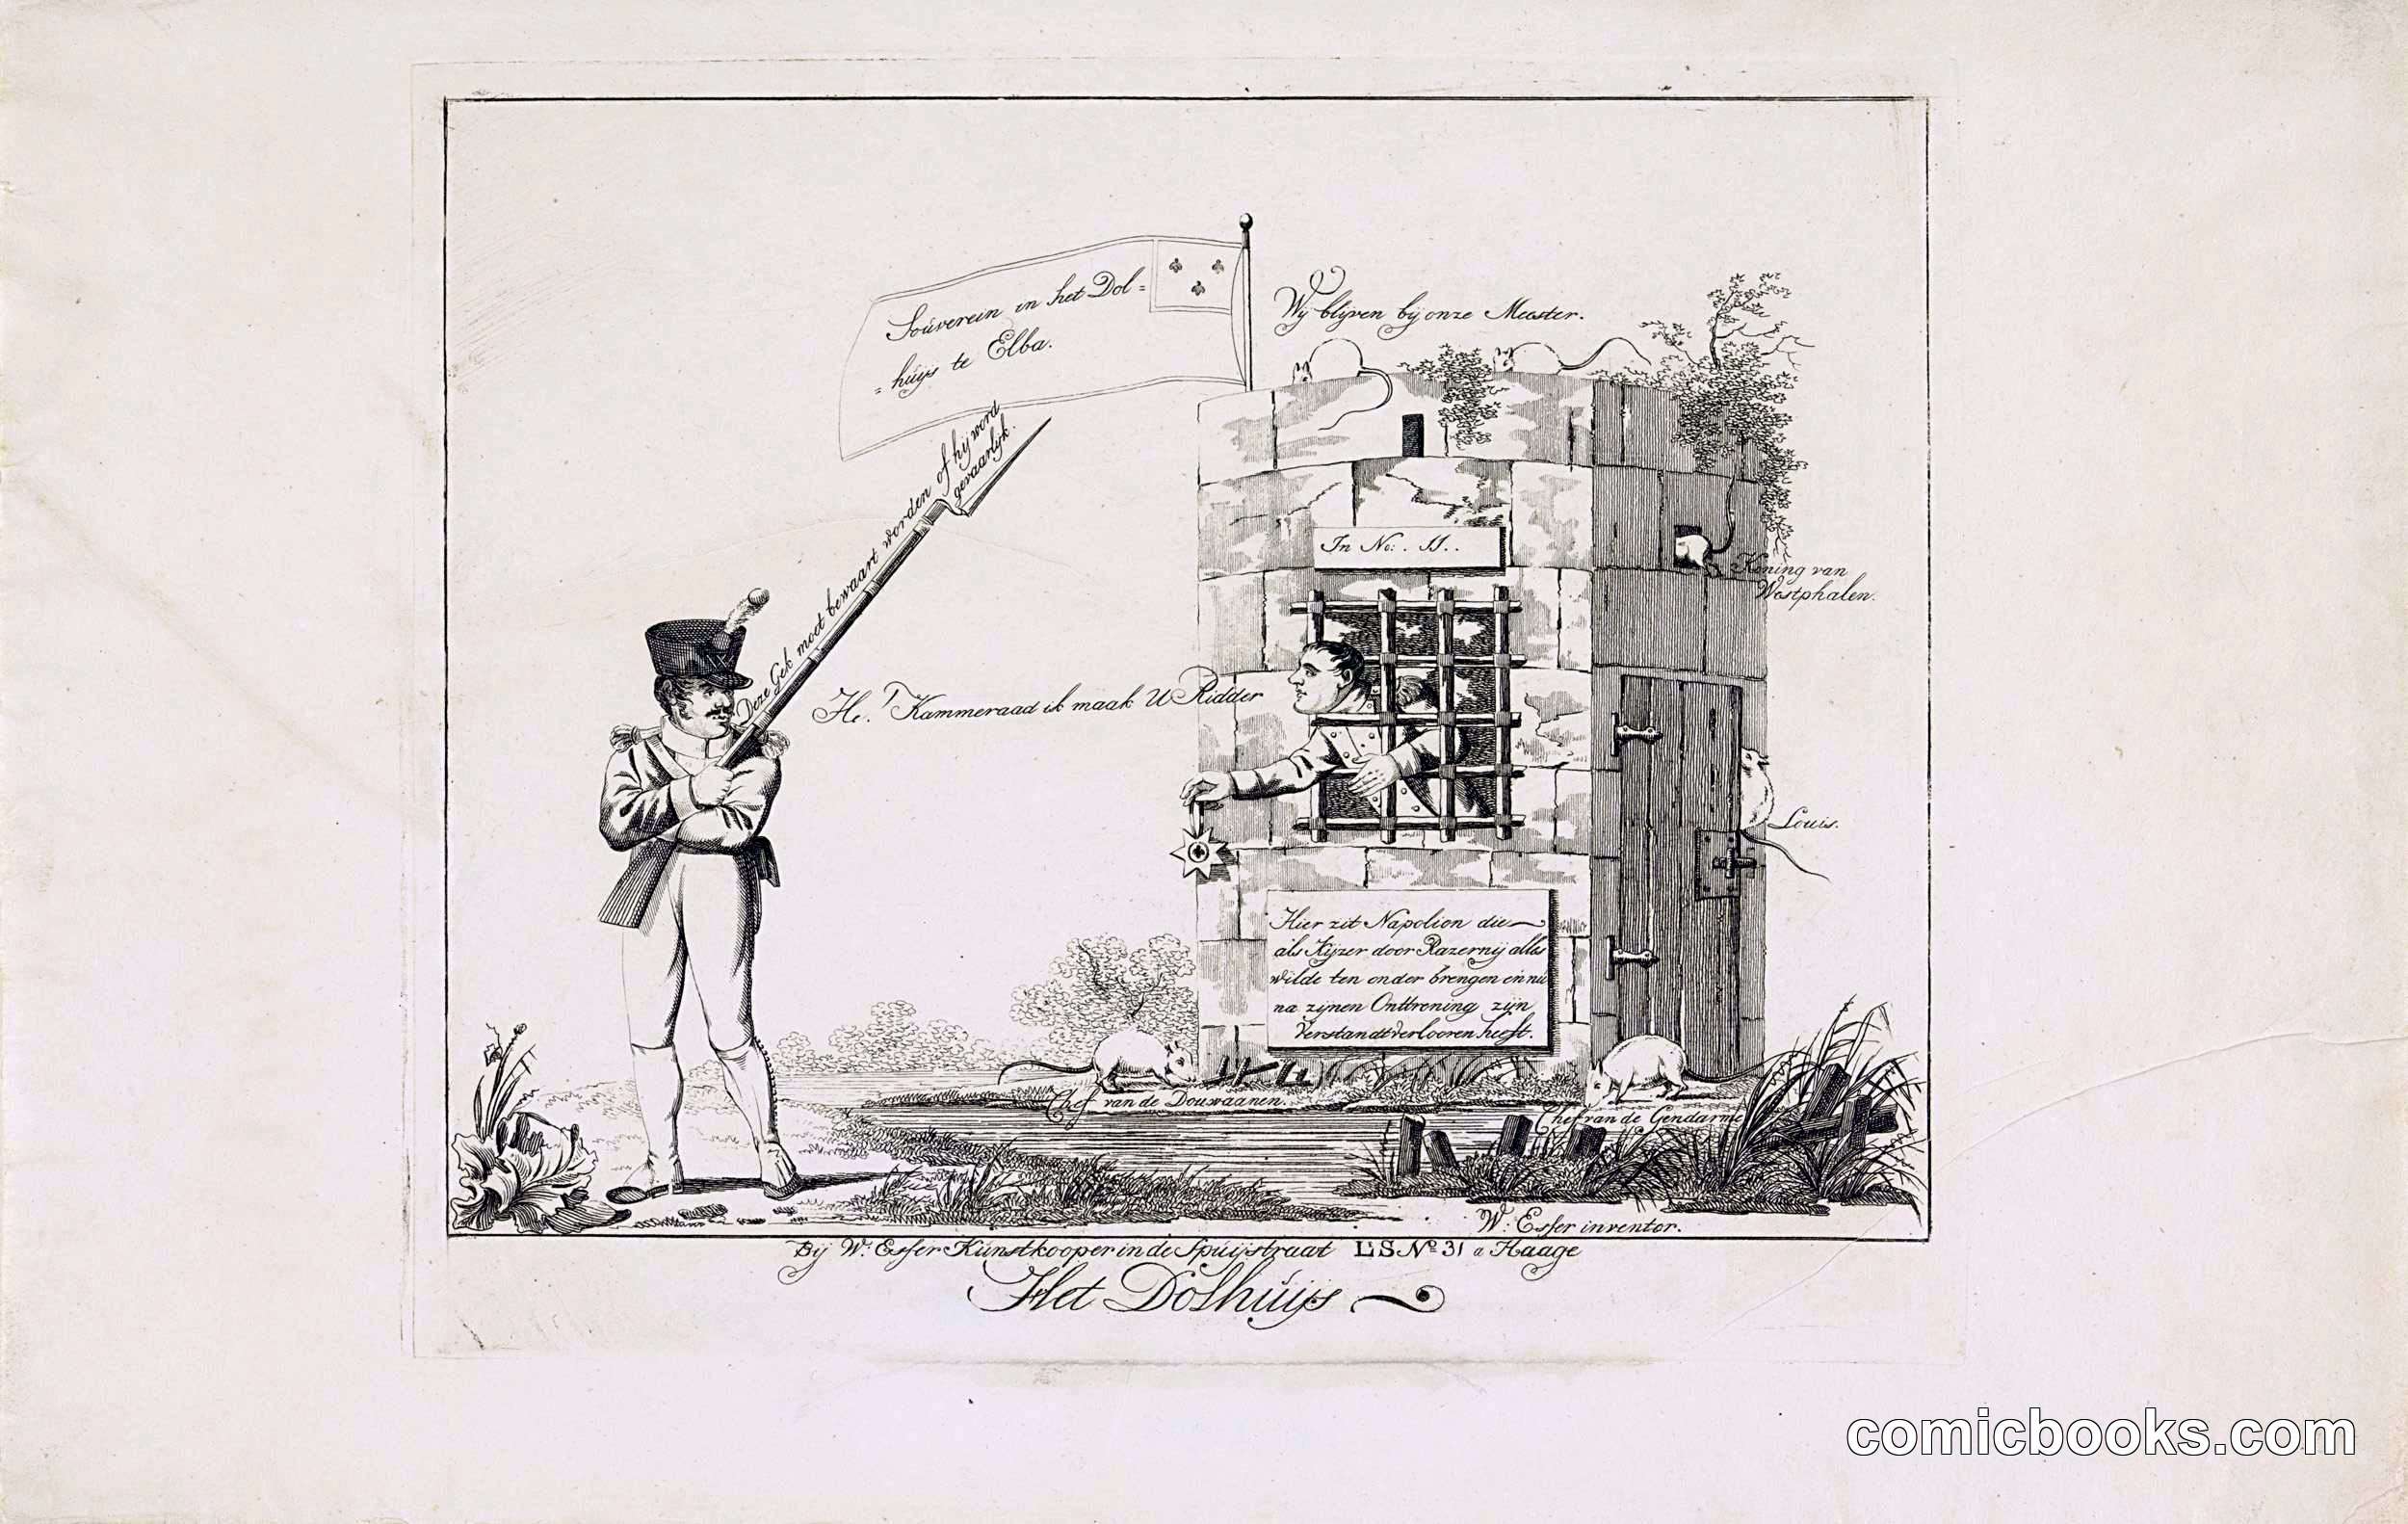 Souverein in het Dol=
=huijs te Elba.
Wij blijven bij onze Meester.
Deze Gek moet bewaart worden of hij word
gevaarlijk.
In No: . 11..
Koning van
Westphalen.
He! Kammeraad ik maak U Ridder
Louis.
Hier zit Napolion die
als Kijzer door Razernij alles
wilde ten onder brengen en nu
na zijnen Onttrening zijn
Verstandt verlooren heeft.
Chef van de Douwaanen.
Chef van de Gendarme
W: Esser inventor.
Bij W: Esser Kunstkooper in de Spuijstraat L:S No 31 a Haage
Het Dolhuijs
comicbooks.com